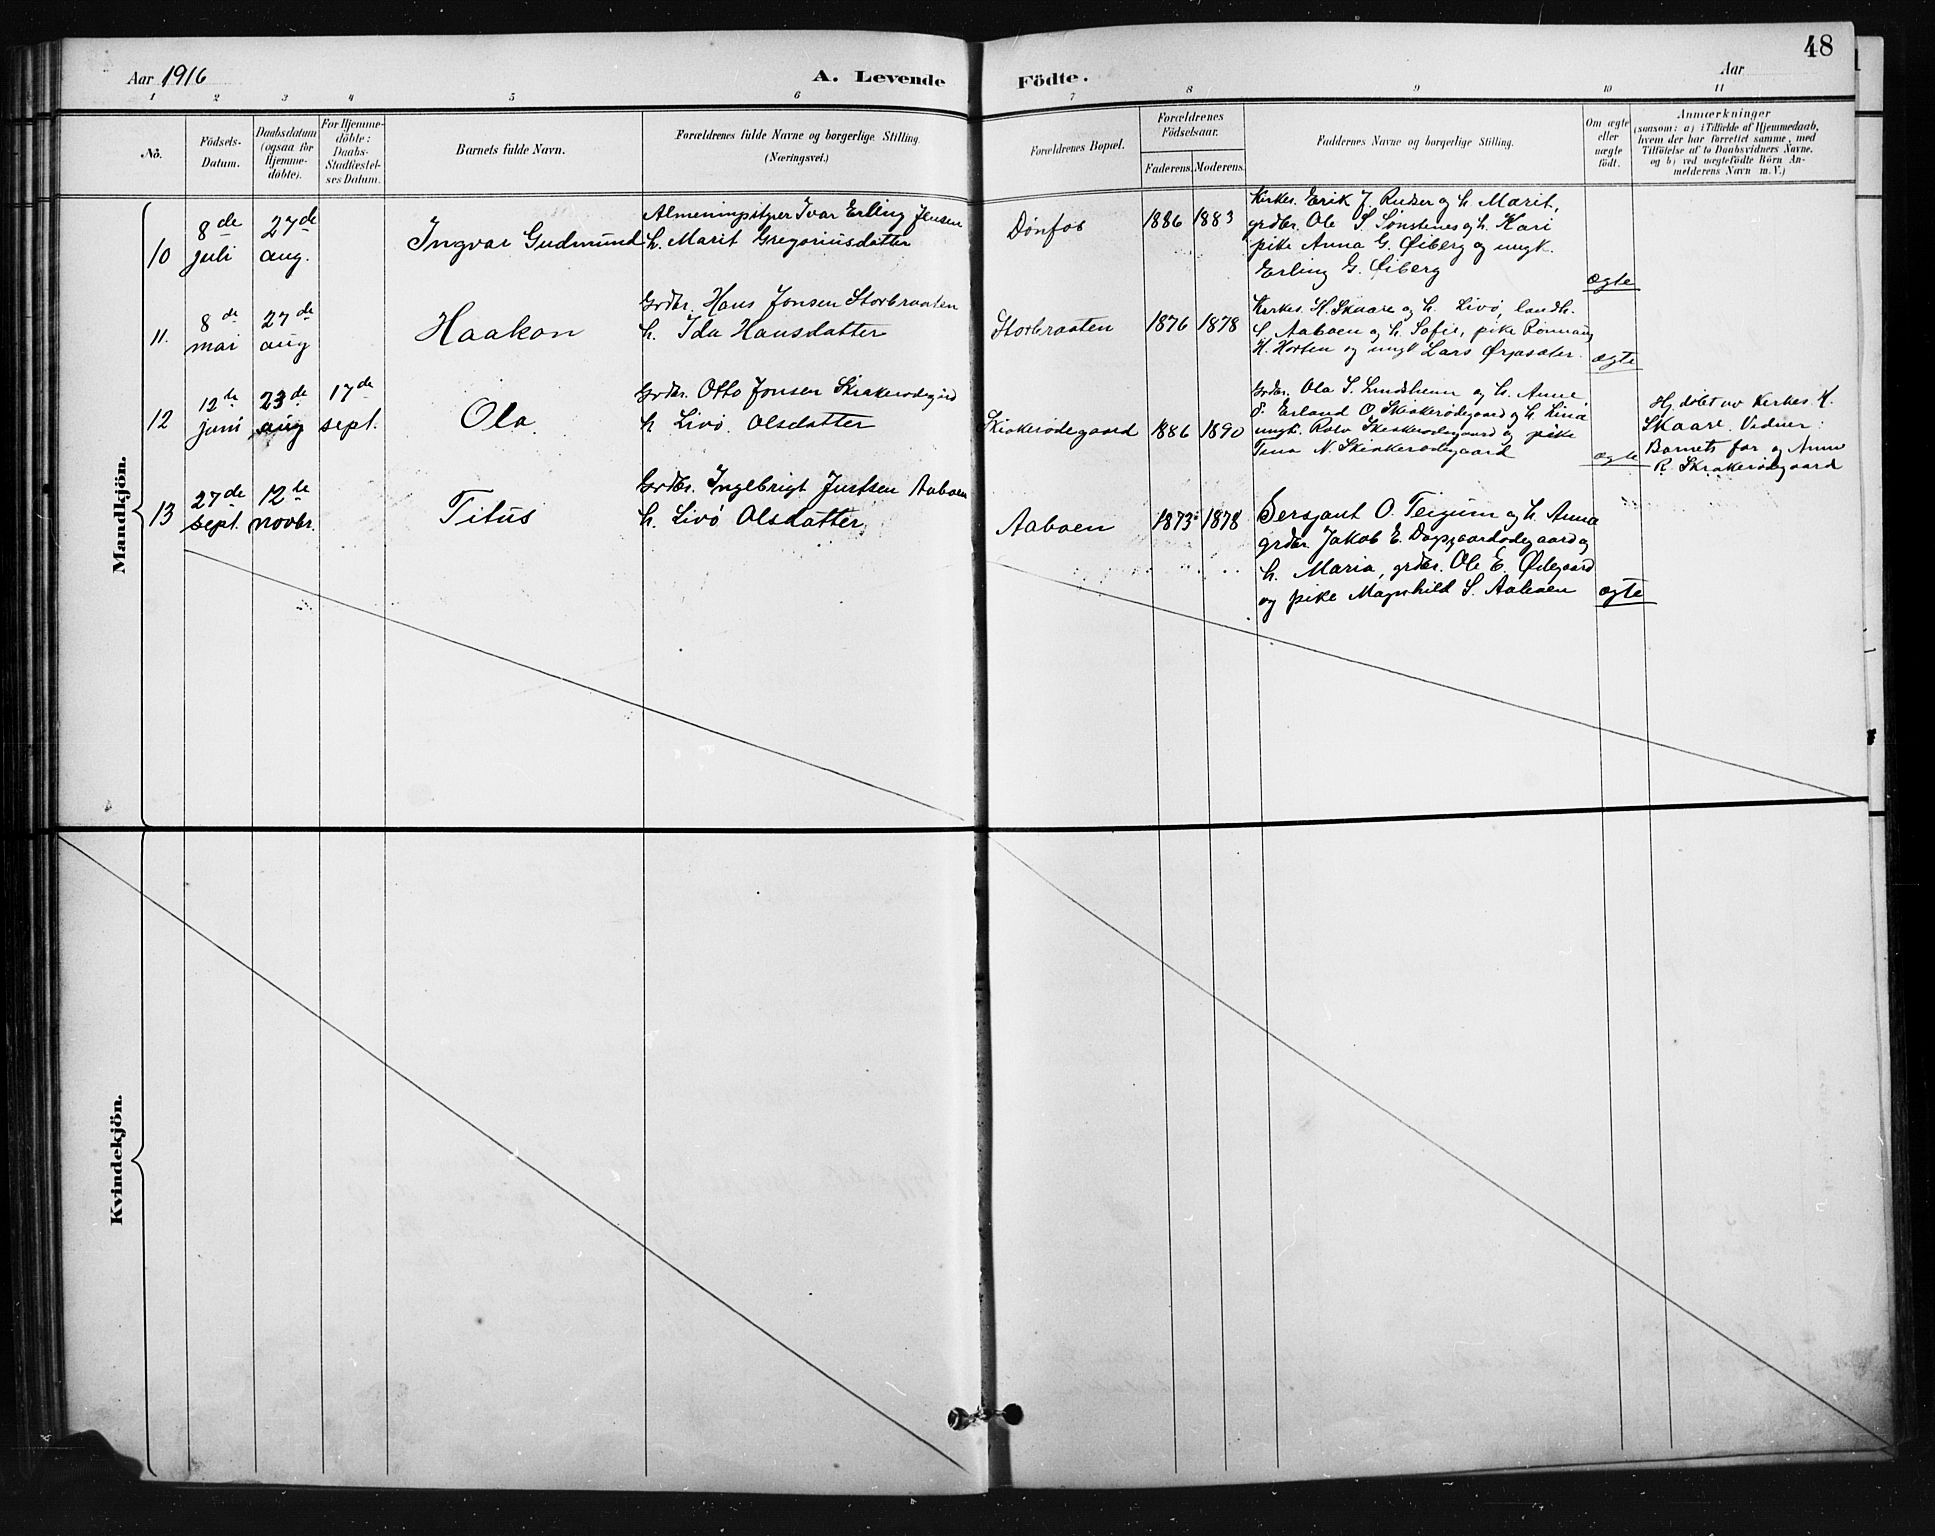 48
Aar 1916
A. Levende
Födte.
Aar
1 2 3 4 5 6 7 8 9 10 11
No.
Födsels-
Datum.
Daabsdatum
(ogsaa for
Hjemme-
döbte).
For Hjemme-
döbte:
Daabs-
Stadfæstel-
ses Datum.
Barnets fulde Navn.
Forældrenes fulde Navne og borgerlige Stilling
(Næringsvei.)
Forældrenes Bopæl.
Forældrenes
Födselsaar.
Faderens. Moderens.
Faddernes Navne og borgerlige Stilling.
Om ægte
eller
uægte
født.
Anmærkninger
(saasom: a) i Tilfælde af Hjemmedaab,
hvem der har forrettet samme, med
Tilföielse af to Daabsvidners Navne,
og b) ved uægtefödte Börn An-
melderens Navn m. V.)
Mandkjön.
10
8de
juli
27de
aug.
Ingvar Gudmund
Ivar Erling Jensen
h. Marit Gregoriusdatter
Dønfos
1886 1883
Kirkes. Erik J. Ruder og h. Marit,
grdbr. Ole S. Sønstenes og h. Kari
pike Anna G. Øiberg og ungk.
Erling G. Øiberg
ægte
11.
8de
mai
27de
aug
Haakon
Grdbr. Hans Jonsen Storbraaten
h. Ida Hansdatter
Storbraaten
1876 1878
Kirkes. H. Skaare og h. Livø, landh.
S. Aaboen og h. Sofie, pike Rønnaug
H. Horten og ungk Lars
ægte
12
12te
juni
23de
aug
17de
sept.
Ola
Grdbr. Otto Jonsen Skiakerødegård
h. Livø Olsdatter
Skiakerødegaard
1886 1890
Grdbr. Ola S. Lindsheim og h. Anne,
Erland O. Skiakerødegaard og h. Lina
ungk. Rolv Skiakerødegaard og pike
Tina N. Skiakerødegaard
ægte
Hj. døbt av Kirkes H.
Skaare. Vidner:
Barnets far og Anne
R. Skiakerødegaard
13
27de
sept.
12te
novbr.
Titus
Grdbr. Ingebrigt Justsen Aaboen
h. Livø Olsdatter
Aaboen
1873 1878
Sersjant O. Teigum og h. Anna
grdbr. Jakob E. Dagsgaardødegaard og
h. Maria, grdbr. Ole E. Ødegaard
og pike Magnhild S. Aaboen
ægte
Kvindekjön.